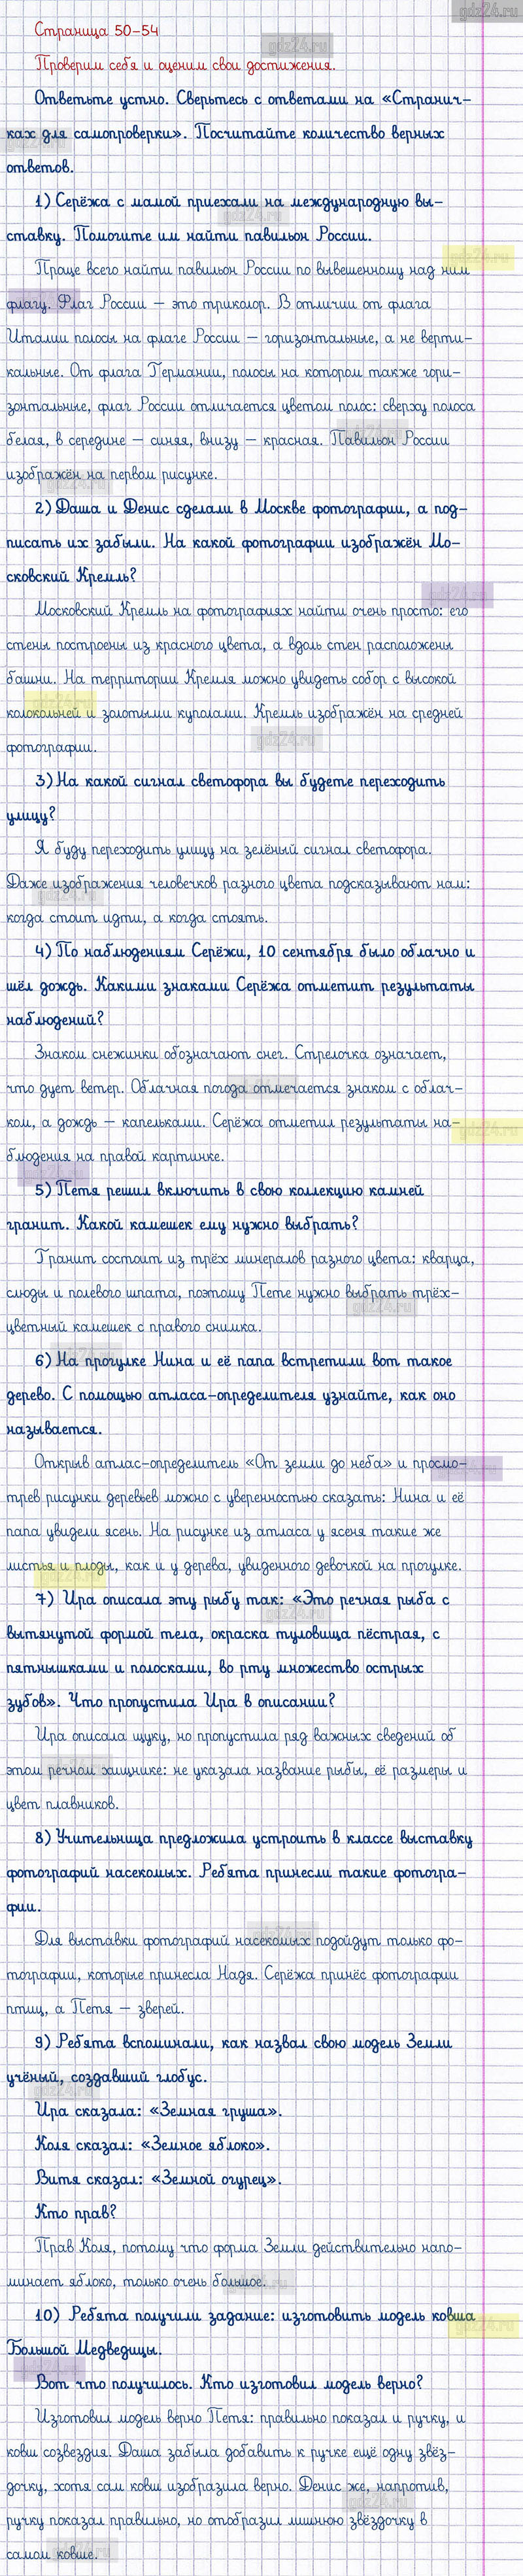 gdz24.ru
Страница 50-54
gdz24.ru
Проверим себя и оценим свои достижения.
Ответьте устно. Сверьтесь с ответами на «Странич-
ках для самопроверки». Посчитайте количество верных
ответов.
1) Серёжа с мамой приехали на международную вы-
ставку. Помогите им найти павильон России.
Проще всего найти павильон России по вывешенному над ним
флагу. Флаг России – это триколор. В отличии от флага
Италии полосы на флаге России – горизонтальные, а не верти-
кальные. От флага Германии, полосы на котором также гори-
зонтальные, флаг России отличается цветом полос: сверху полоса
белая, в середине – синяя, внизу – красная. Павильон России
изображён на первом рисунке.
2) Даша и Денис сделали в Москве фотографии, а под-
писать их забыли. На какой фотографии изображён Мо-
сковский Кремль?
Московский Кремль на фотографиях найти очень просто: его
стены построены из красного цвета, а вдоль стен расположены
башни. На территории Кремля можно увидеть собор с высокой
колокольней и золотыми куполами. Кремль изображён на средней
фотографии.
3) На какой сигнал светофора вы будете переходить
улицу?
Я буду переходить улицу на зелёный сигнал светофора.
Даже изображения человечков разного цвета подсказывают нам:
когда стоит идти, а когда стоять.
4) По наблюдениям Серёжи, 10 сентября было облачно и
шёл дождь. Какими знаками Серёжа отметит результаты
наблюдений?
Знаком снежинки обозначают снег. Стрелочка означает,
что дует ветер. Облачная погода отмечается знаком с облач-
ком, а дождь – капельками. Серёжа отметил результаты на-
блюдения на правой картинке.
5) Петя решил включить в свою коллекцию камней
гранит. Какой камешек ему нужно выбрать?
Гранит состоит из трёх минералов разного цвета: кварца,
слюды и полевого шпата, поэтому Пете нужно выбрать трёх-
цветный камешек с правого снимка.
6) На прогулке Нина и её папа встретили вот такое
дерево. С помощью атласа-определителя узнайте, как оно
называется.
Открыв атлас-определитель «От земли до неба» и просмо-
трев рисунки деревьев можно с уверенностью сказать: Нина и её
папа увидели ясень. На рисунке из атласа у ясеня такие же
листья и плоды, как и у дерева, увиденного девочкой на прогулке.
7) Ира описала эту рыбу так: «Это речная рыба с
вытянутой формой тела, окраска туловища пёстрая, с
пятнышками и полосками, во рту множество острых
зубов». Что пропустила Ира в описании?
Ира описала щуку, но пропустила ряд важных сведений об
этом речном хищнике: не указала название рыбы, её размеры и
цвет плавников.
8) Учительница предложила устроить в классе выставку
фотографий насекомых. Ребята принесли такие фотогра-
фии.
Для выставки фотографий насекомых подойдут только фо-
тографии, которые принесла Надя. Серёжа принёс фотографии
птиц, а Петя – зверей.
9) Ребята вспоминали, как назвал свою модель Земли
учёный, создавший глобус.
Ира сказала: «Земная груша».
Коля сказал: «Земное яблоко».
Витя сказал: «Земной огурец».
Кто прав?
Прав Коля, потому что форма Земли действительно напо-
минает яблоко, только очень большое.
10) Ребята получили задание: изготовить модель ковша
Большой Медведицы.
Вот что получилось. Кто изготовил модель верно?
Изготовил модель верно Петя: правильно показал и ручку, и
ковш созвездия. Даша забыла добавить к ручке ещё одну звёз-
дочку, хотя сам ковш изобразила верно. Денис же, напротив,
ручку показал правильно, но отобразил лишнюю звёздочку в
самом ковше.